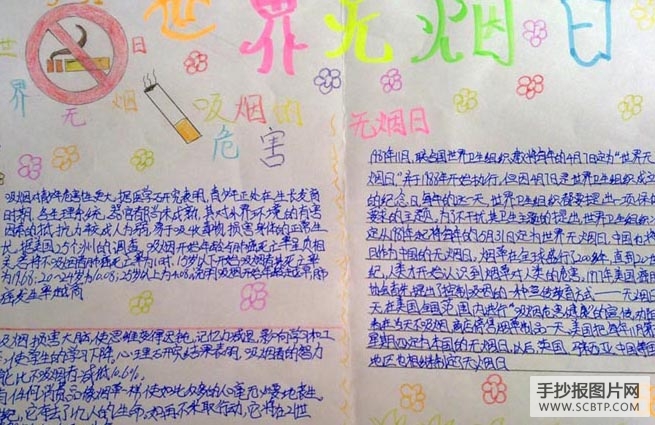 世界无烟日
世 日
界 无 烟 吸烟的
危害
无烟日
吸烟对青少年危害性更大,据医学研究表明,青少年正处在生长发育
时期,各生理系统、器官都尚未成熟,其对外界环境的有害
因素的抵抗力较成人为弱,易于吸收毒物,损害身体的正常生
长。据美国25个州的调查,吸烟开始年龄与肺癌死亡率呈负相
关。若将不吸烟者肺癌死亡率定为1时,15岁以下开始吸烟者其死亡率
为19.68;20-24岁为10.08;25岁以上为4.08。说明吸烟开始年龄越早,肺
癌发生率越高
吸烟损害大脑,使思维变得迟钝,记忆力减退,影响学习和工
作,使学生的学习下降。心理研究结果表明,吸烟者的智力
能比不吸烟者减低10.6%。
有任何消费品像烟草一样,使如此众多的人心甘无悔地丧生。
纪,它夺去了亿人的生命。如再不采取行动,它将在21世
1987年11月,联合国世界卫生组织建议将每年的4月7日定为“世界无
烟日”,并于1988年开始执行。但因4月7日是世界卫生组织成立
的纪念日,每年的这一天,世界卫生组织都要提出一项保健
要求的主题。为了不干扰其卫生主题的提出,世界卫生组织决
定从1989年起将每年的5月31日定为世界无烟日,中国也将
日作为中国的无烟日。烟草在全球盛行了200多年,直到20世
纪,人类才开始认识到烟草对人类的危害。1977年,美国癌症
协会首先提出了控制吸烟的一种宣传教育方式——无烟日
天,在美国全国范围内进行“吸烟危害健康”的宣传,劝阻
者在当天不吸烟,商店停售烟草制品一天。美国把每年11月第
星期四定为美国的无烟日。以后,英国、马来西亚、中国香港
地区也相继制定了无烟日
手抄报图片网
WWW.SCBTP.COM